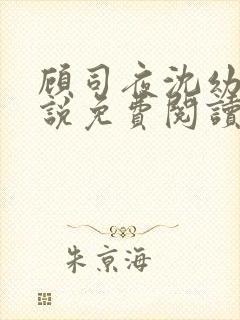 顾司夜沈幼
說免費閱讀
朱京海